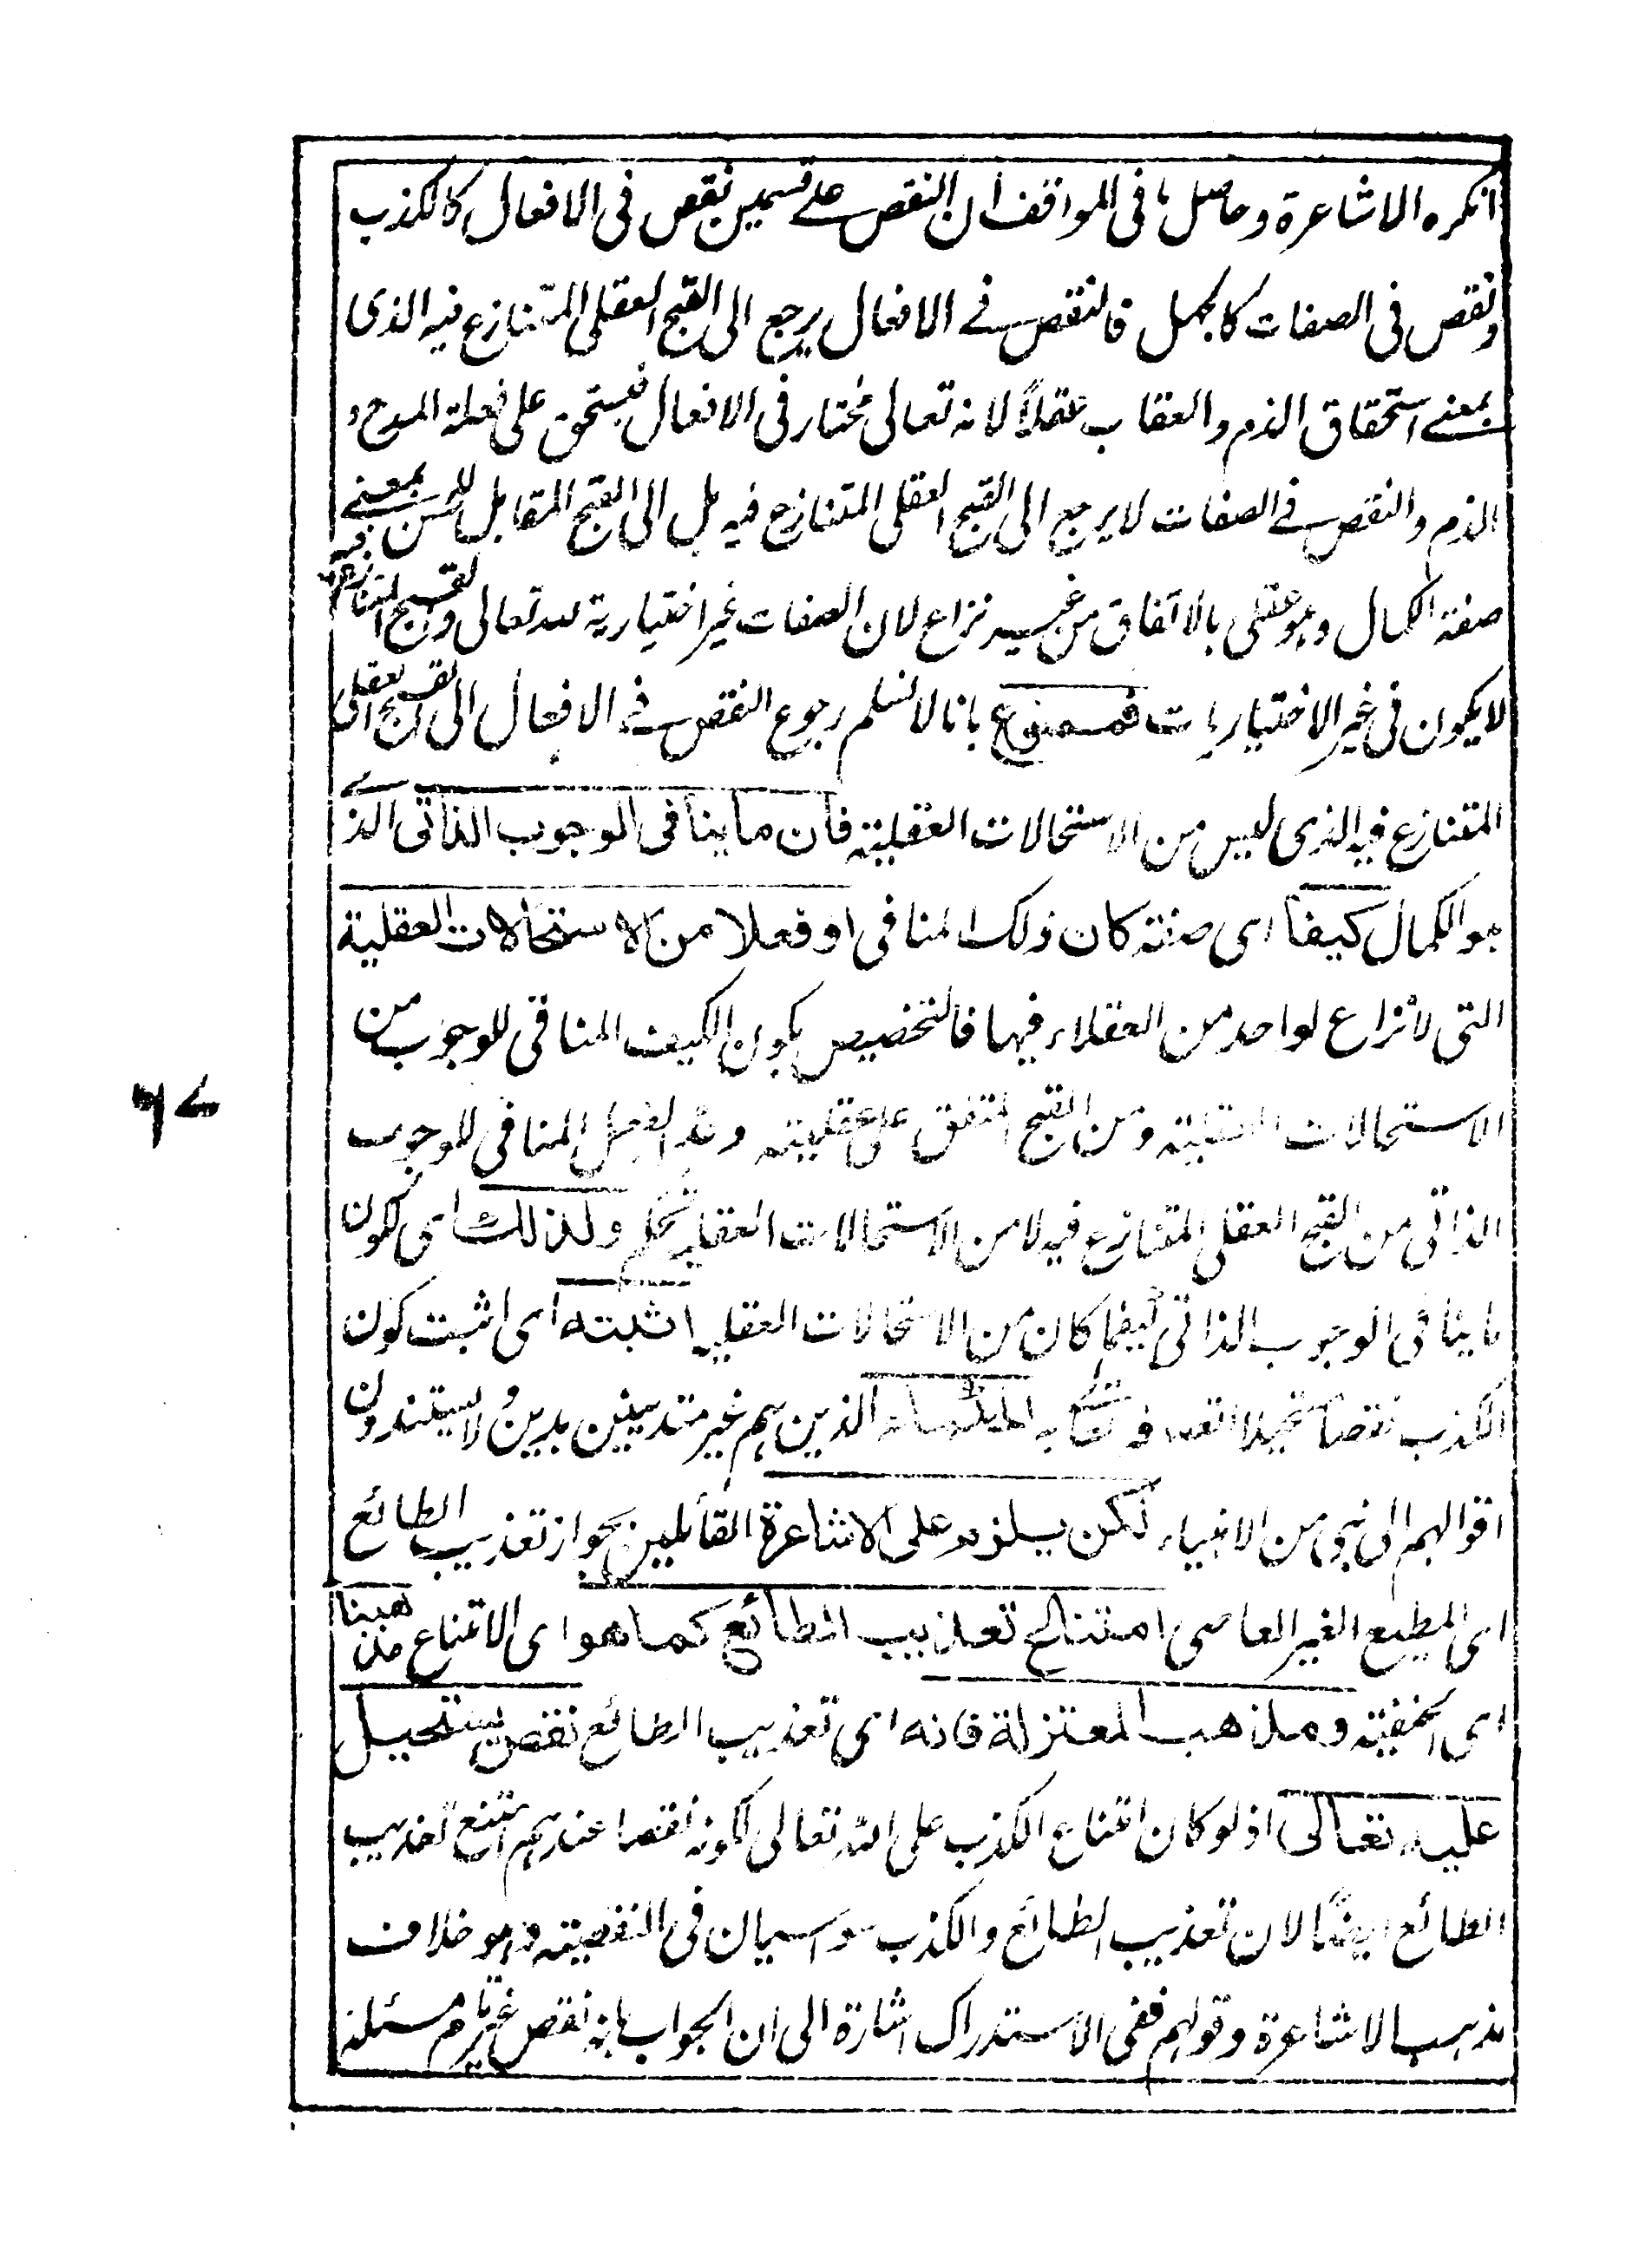 انكره الاشاعرة وحاصل ما فى المواقف ان النقص على قسمين نقص فى الافعال كالكذب
ونقص فى الصفات كالجهل فالنقص فى الافعال يرجع الى القبح العقلى المتنازع فيه الذى
بمعنے استحقاق الذم والعقاب عقلاً لانه تعالى مختار فى الافعال فيستحق على فعله المدح و
الذم والنقص فے الصفات لا يرجع الى القبح العقلى المتنازع فيه بل الى القبح المقابل للحسن بمعنے
صفة الكمال وهو عقلى بالاتفاق من غير نزاع لان الصفات غير اختيارية لله تعالى والقبح المتنازع فيه
لا يكون فى غير الاختياريات فممنوع بانا لا نسلم رجوع النقص فے الافعال الى القبح العقلى
المتنازع فيه الذى ليس من الاستحالات العقلية فان ما ينافى الوجوب الذاتى الذے
هو الكمال كيفاً اى صفة كان ذلك المنافى او فعلا من الاستحالات العقلية
التى لا نزاع لواحد من العقلاء فيها فالتخصيص بكون الكيف المنافى للوجوب من
الاستحالات العقلية ومن القبح المتفق على عقليته وعد الفعل المنافى للوجوب
الذاتى من القبح العقلى المتنازع فيه لا من الاستحالات العقلية تحكم ولذلك اى لكون
ما ينافى الوجوب الذاتى كيفما كان من الاستحالات العقلية اثبته اى اثبت كون
الكذب نقصاً مستحيلا اتصافه تعالى به الحكماء الذين هم غير متدينين بدين ولا يستندون
اقوالهم الى نبى من الانبياء لكن يلزم على الاشاعرة القائلين بجواز تعذيب الطائع
اى المطيع الغير العاصى امتناع تعذيب الطائع كما هو اى الامتناع مذهبنا
اى الحنفية ومذهب المعتزلة فانه اى تعذيب الطائع نقص يستحيل
عليه تعالى اذ لو كان امتناع الكذب على الله تعالى لكونه نقصا عندهم امتنع تعذيب
الطائع ايضاً لان تعذيب الطائع والكذب سواسيان فى النقصية وهو خلاف
مذهب الاشاعرة وقولهم ففى الاستدراك اشارة الى ان الجواب بانه نقص غير تام مسئلة
٦٧